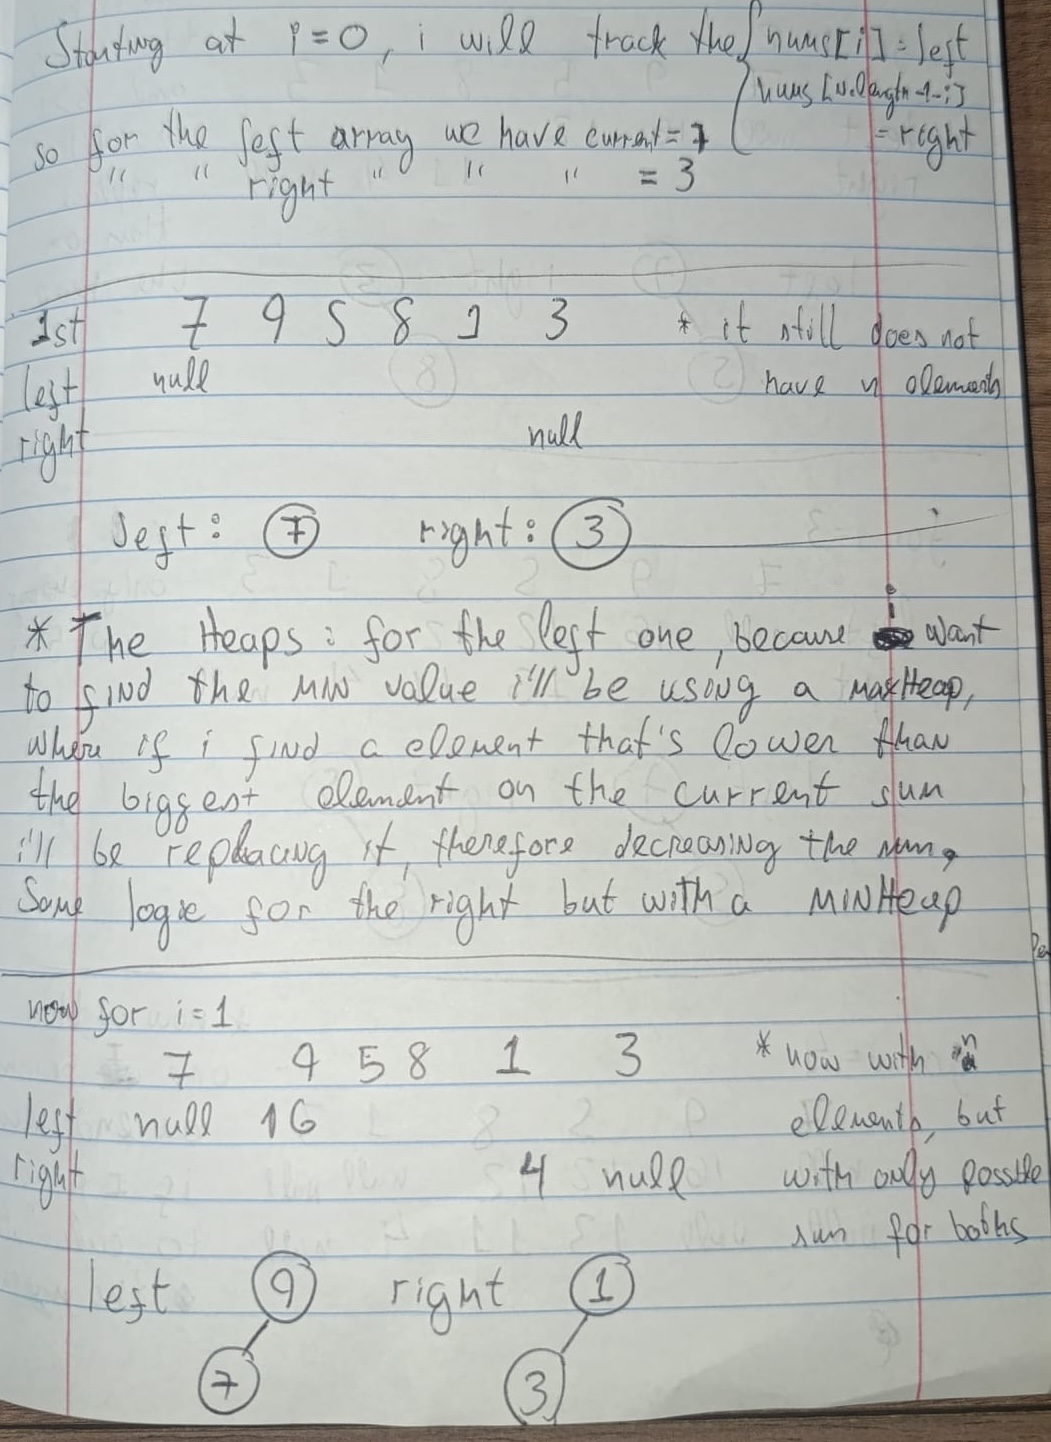 Starting at i=0, i will track the { nums[i] = left
nums[n.length-1-i]
= right
so for the left array we have current = 7
" " right " " " = 3
1st 7 9 5 8 1 3 * it still does not
left null have n elements
right null
left: 7 right: 3
* The Heaps: for the left one, because i want
to find the MIN value i'll be using a maxHeap,
where if i find a element that's lower than
the biggest element on the current sum
i'll be replacing it, therefore decreasing the sum,
Same logic for the right but with a MINHeap
now for i=1
7 9 5 8 1 3 * now with n
left null 16 elements, but
right 4 null with only possible
sum for boths
left 9 right 1
7 3